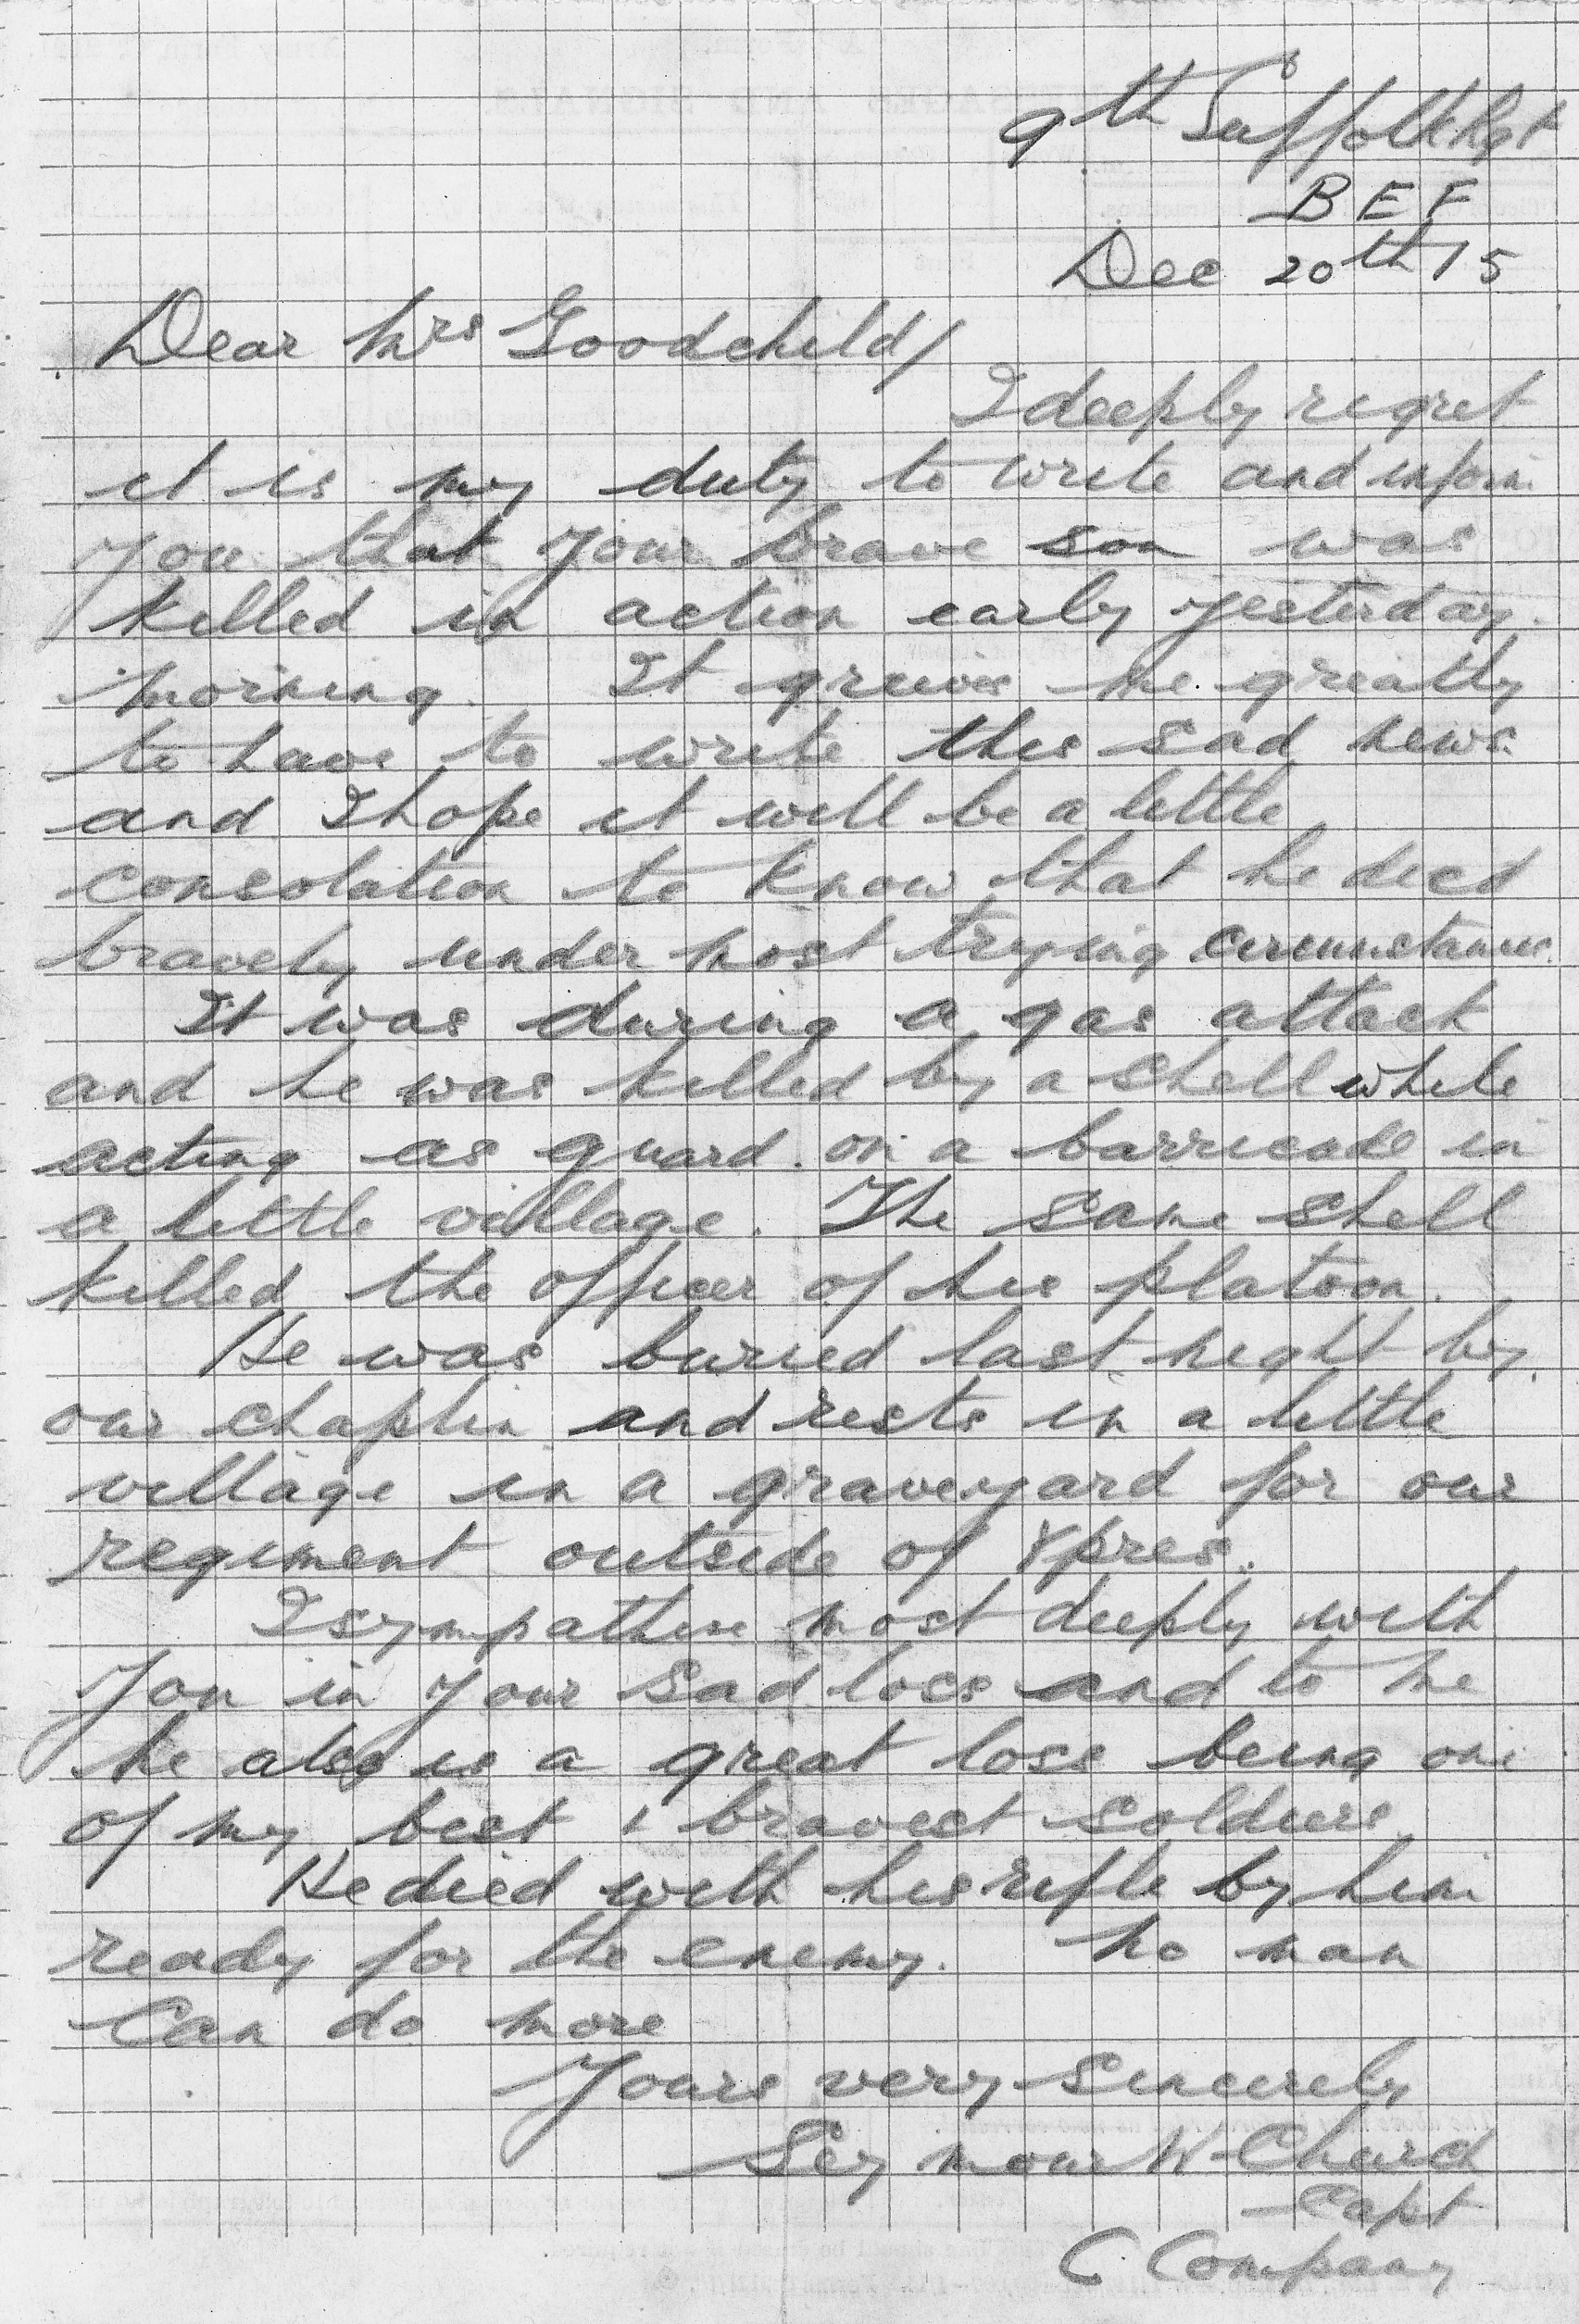 9th Suffolk Rgt
B E F
Dec 20th 15
Dear Mrs Goodchild/
I deeply regret
it is my duty to write and inform
you that your brave son was
killed in action early yesterday
morning. It grieves me greatly
to have to write this sad news
and I hope it will be a little
consolation to know that he died
bravely under most trying circumstances.
It was during a gas attack
and he was killed by a shell while
acting as guard on a barricade in
a little village. The same shell
killed the officer of his platoon.
He was buried last night by
our chaplin and rests in a little
village in a graveyard for our
regiment outside of Ypres.
I sympathise most deeply with
you in your sad loss and to me
he also is a great loss being one
of my best & bravest soldiers
He died with his rifle by him
ready for the enemy. No man
can do more
Yours very sincerely
Seymour W Chard
Capt
C Company